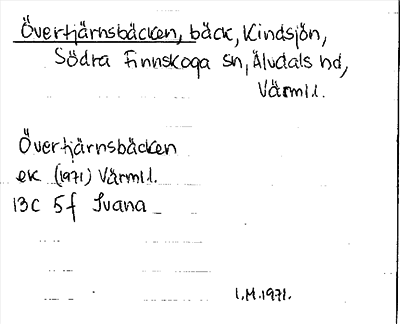 Övertjärnsbäcken, bäck, Kindsjön,
Södra Finnskoga sn, Älvdals hd,
Värml.
Övertjärnsbäcken
ek (1971) Värml.
13C 5f Ivana
I.M.1971.